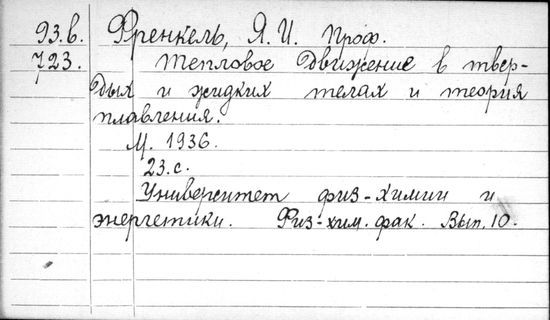 93.в. Френкель, Я. И. Проф.
723. Тепловое движение в твер-
дых и жидких телах и теория
плавления.
М. 1936.
23.с.
Университет физ-химии и
энергетики. Физ-хим. фак. Вып. 10.